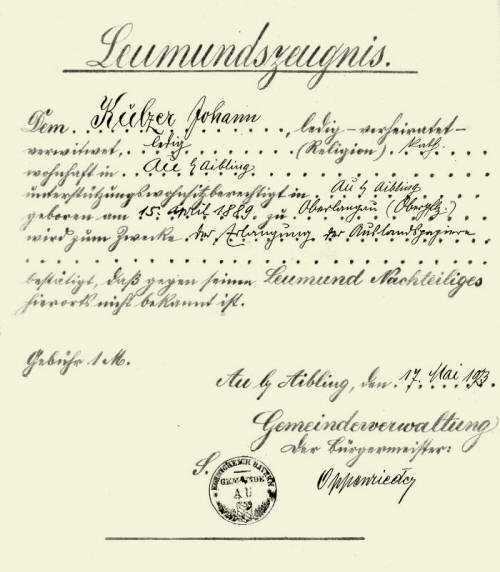 Leumundszeugnis.
Dem Kulzer Johann, ledig-verheiratet-
verwitwet, ledig (Religion) kath.
wohnhaft in Au b/ Aibling
unterstützungswohnsitzberechtigt in Au b/ Aibling
geboren am 15. April 1889 zu Oberlangau (Oberpflz.)
wird zum Zwecke der Erlangung der Auslandspapiere
bestätigt, daß gegen seinen Leumund Nachteiliges
hierorts nicht bekannt ist.
Gebühr 1 M.
Au b/ Aibling, den 17. Mai 1913.
Gemeindeverwaltung
Der Bürgermeister:
S.
KÖNIGREICH BAYERN
GEMEINDE
AU